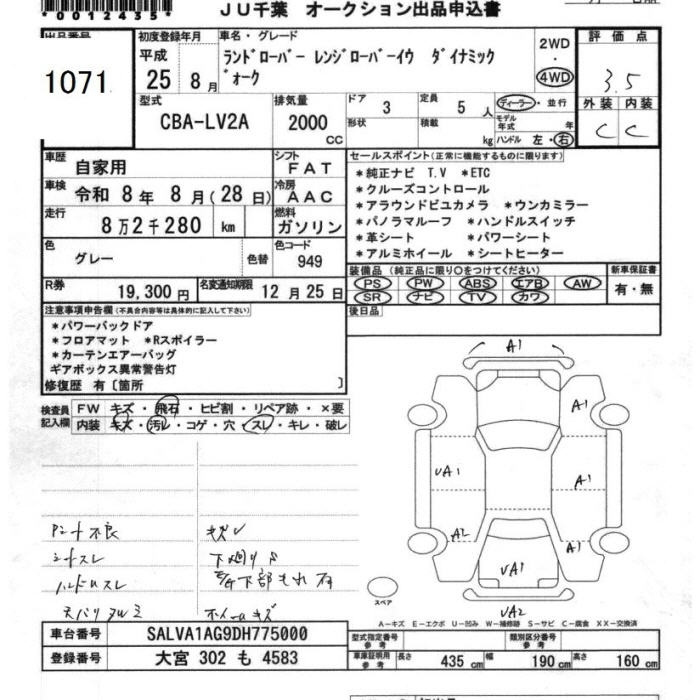 *0012435*
JU千葉 オークション出品申込書
出品番号
1071
初度登録年月
平成
25年8月
車名・グレード
ランドローバー レンジローバーイヴ ダイナミック
ヴォーク
2WD
・
4WD
評価点
3.5
外装 内装
C C
型式
CBA-LV2A
排気量
2000
CC
ドア 3
定員 5人
形状
積載 kg
ディーラー・並行
モデル年式 年
ハンドル 左・右
車歴 自家用
シフト FAT
車検 令和 8年 8月(28日)
冷房 AAC
走行 8万2千280 km
燃料 ガソリン
色 グレー 色替
色コード 949
R券 19,300円
名変通知期限 12月25日
セールスポイント(正常に機能するものに限ります)
*純正ナビ T.V *ETC
*クルーズコントロール
*アラウンドビュカメラ *ウンカミラー
*パノラマルーフ *ハンドルスイッチ
*革シート *パワーシート
*アルミホイール *シートヒーター
装備品(純正品に限り○をつけてください)
PS PW ABS エアB AW
SR ナビ TV カワ
新車保証書
有・無
後日品
注意事項申告欄(不具合内容等は具体的に記入して下さい)
*パワーバックドア
*フロアマット *Rスポイラー
*カーテンエアーバッグ
ギアボックス異常警告灯
修復歴 有〔箇所 〕
検査員記入欄
FW キズ・飛石・ヒビ割・リペア跡・×要
内装 キズ・汚レ・コゲ・穴・スレ・キレ・破レ
シートスレ
ハンドルスレ
下廻りサビ
ホイールキズ
A1
A1
UA1
A1
A2
A1
UA1
UA2
スペア
A-キズ E-エクボ U-凹み W-補修跡 S-サビ C-腐食 XX-交換済
車台番号 SALVA1AG9DH775000
登録番号 大宮 302 も 4583
型式指定番号 参考
類別区分番号 参考
車庫証明用 参考
長さ 435 cm 幅 190 cm 高さ 160 cm